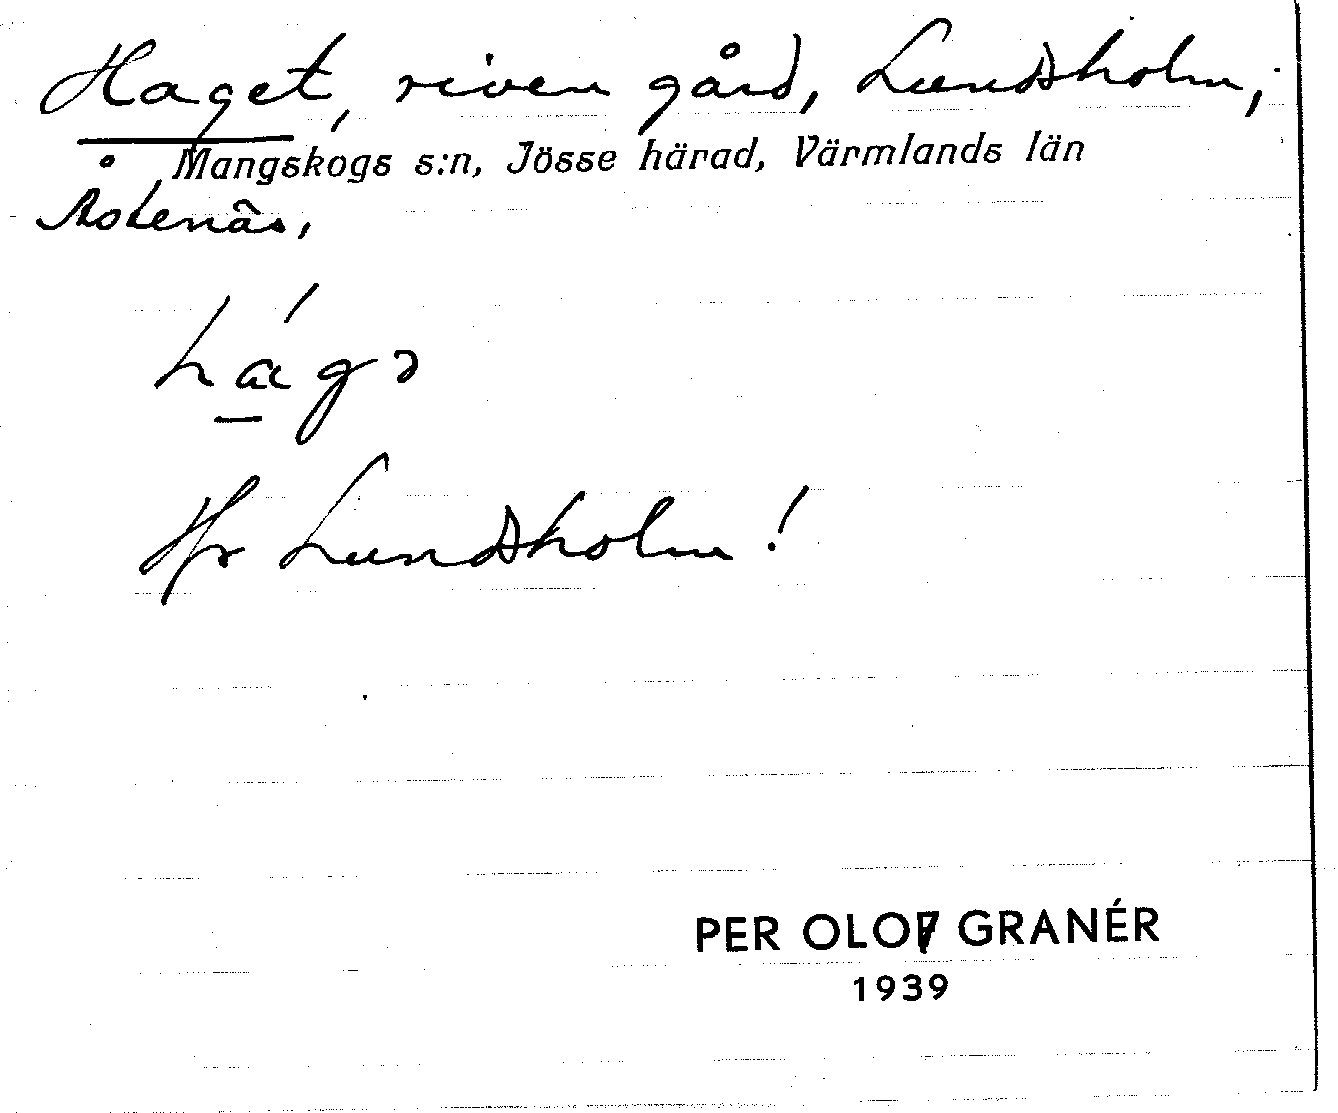 Haget, riven gård, Lundsholm,
Mangskogs s:n, Jösse härad, Värmlands län
Åstenäs,
Hr Lundsholm!
PER OLOF GRANÉR
1939